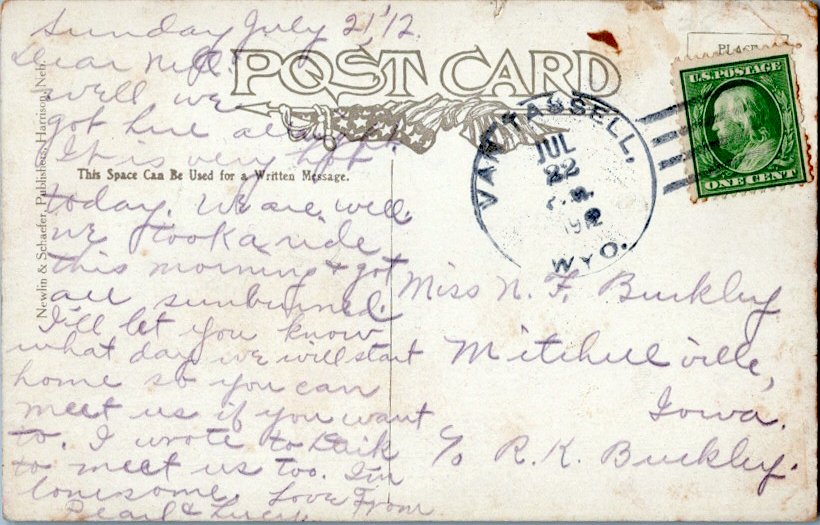 Sunday July 21, '12.
Dear Nell:
Well we
got here alright.
It is very hot
today. We are well.
We took a ride
this morning & got
all sunburned.
I'll let you know
what day we will start
home so you can
meet us if you want
to. I wrote to
to meet us too. I'm
lonesome. Love From
Pearl & Lucy.
POST CARD
This Space Can Be Used for a Written Message.
Newlin & Schaefer, Publishers, Harrison, Neb.
VAN TASSELL,
JUL
22
1912
WYO.
PLACE
U.S. POSTAGE
ONE CENT
Miss N. F. Buckley
Mitchellville,
Iowa.
c/o R. K. Buckley.